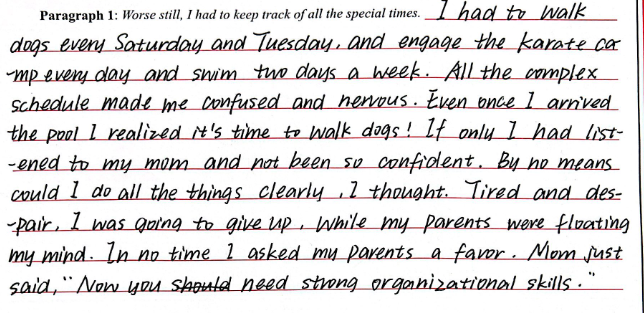 Paragraph 1: Worse still, I had to keep track of all the special times. I had to walk
dogs every Saturday and Tuesday, and engage the karate ca
-mp every day and swim two days a week. All the complex
schedule made me confused and nervous. Even once I arrived
the pool I realized it's time to walk dogs! If only I had list-
-ened to my mom and not been so confident. By no means
could I do all the things clearly, I thought. Tired and des-
-pair, I was going to give up, while my parents were floating
my mind. In no time I asked my parents a favor. Mom just
said, "Now you should need strong organizational skills."